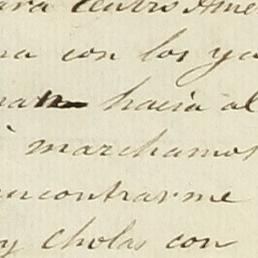 ara Centro Ame
na con los ya
nan hacia al
marchamos
encontrarme
y Cholas con